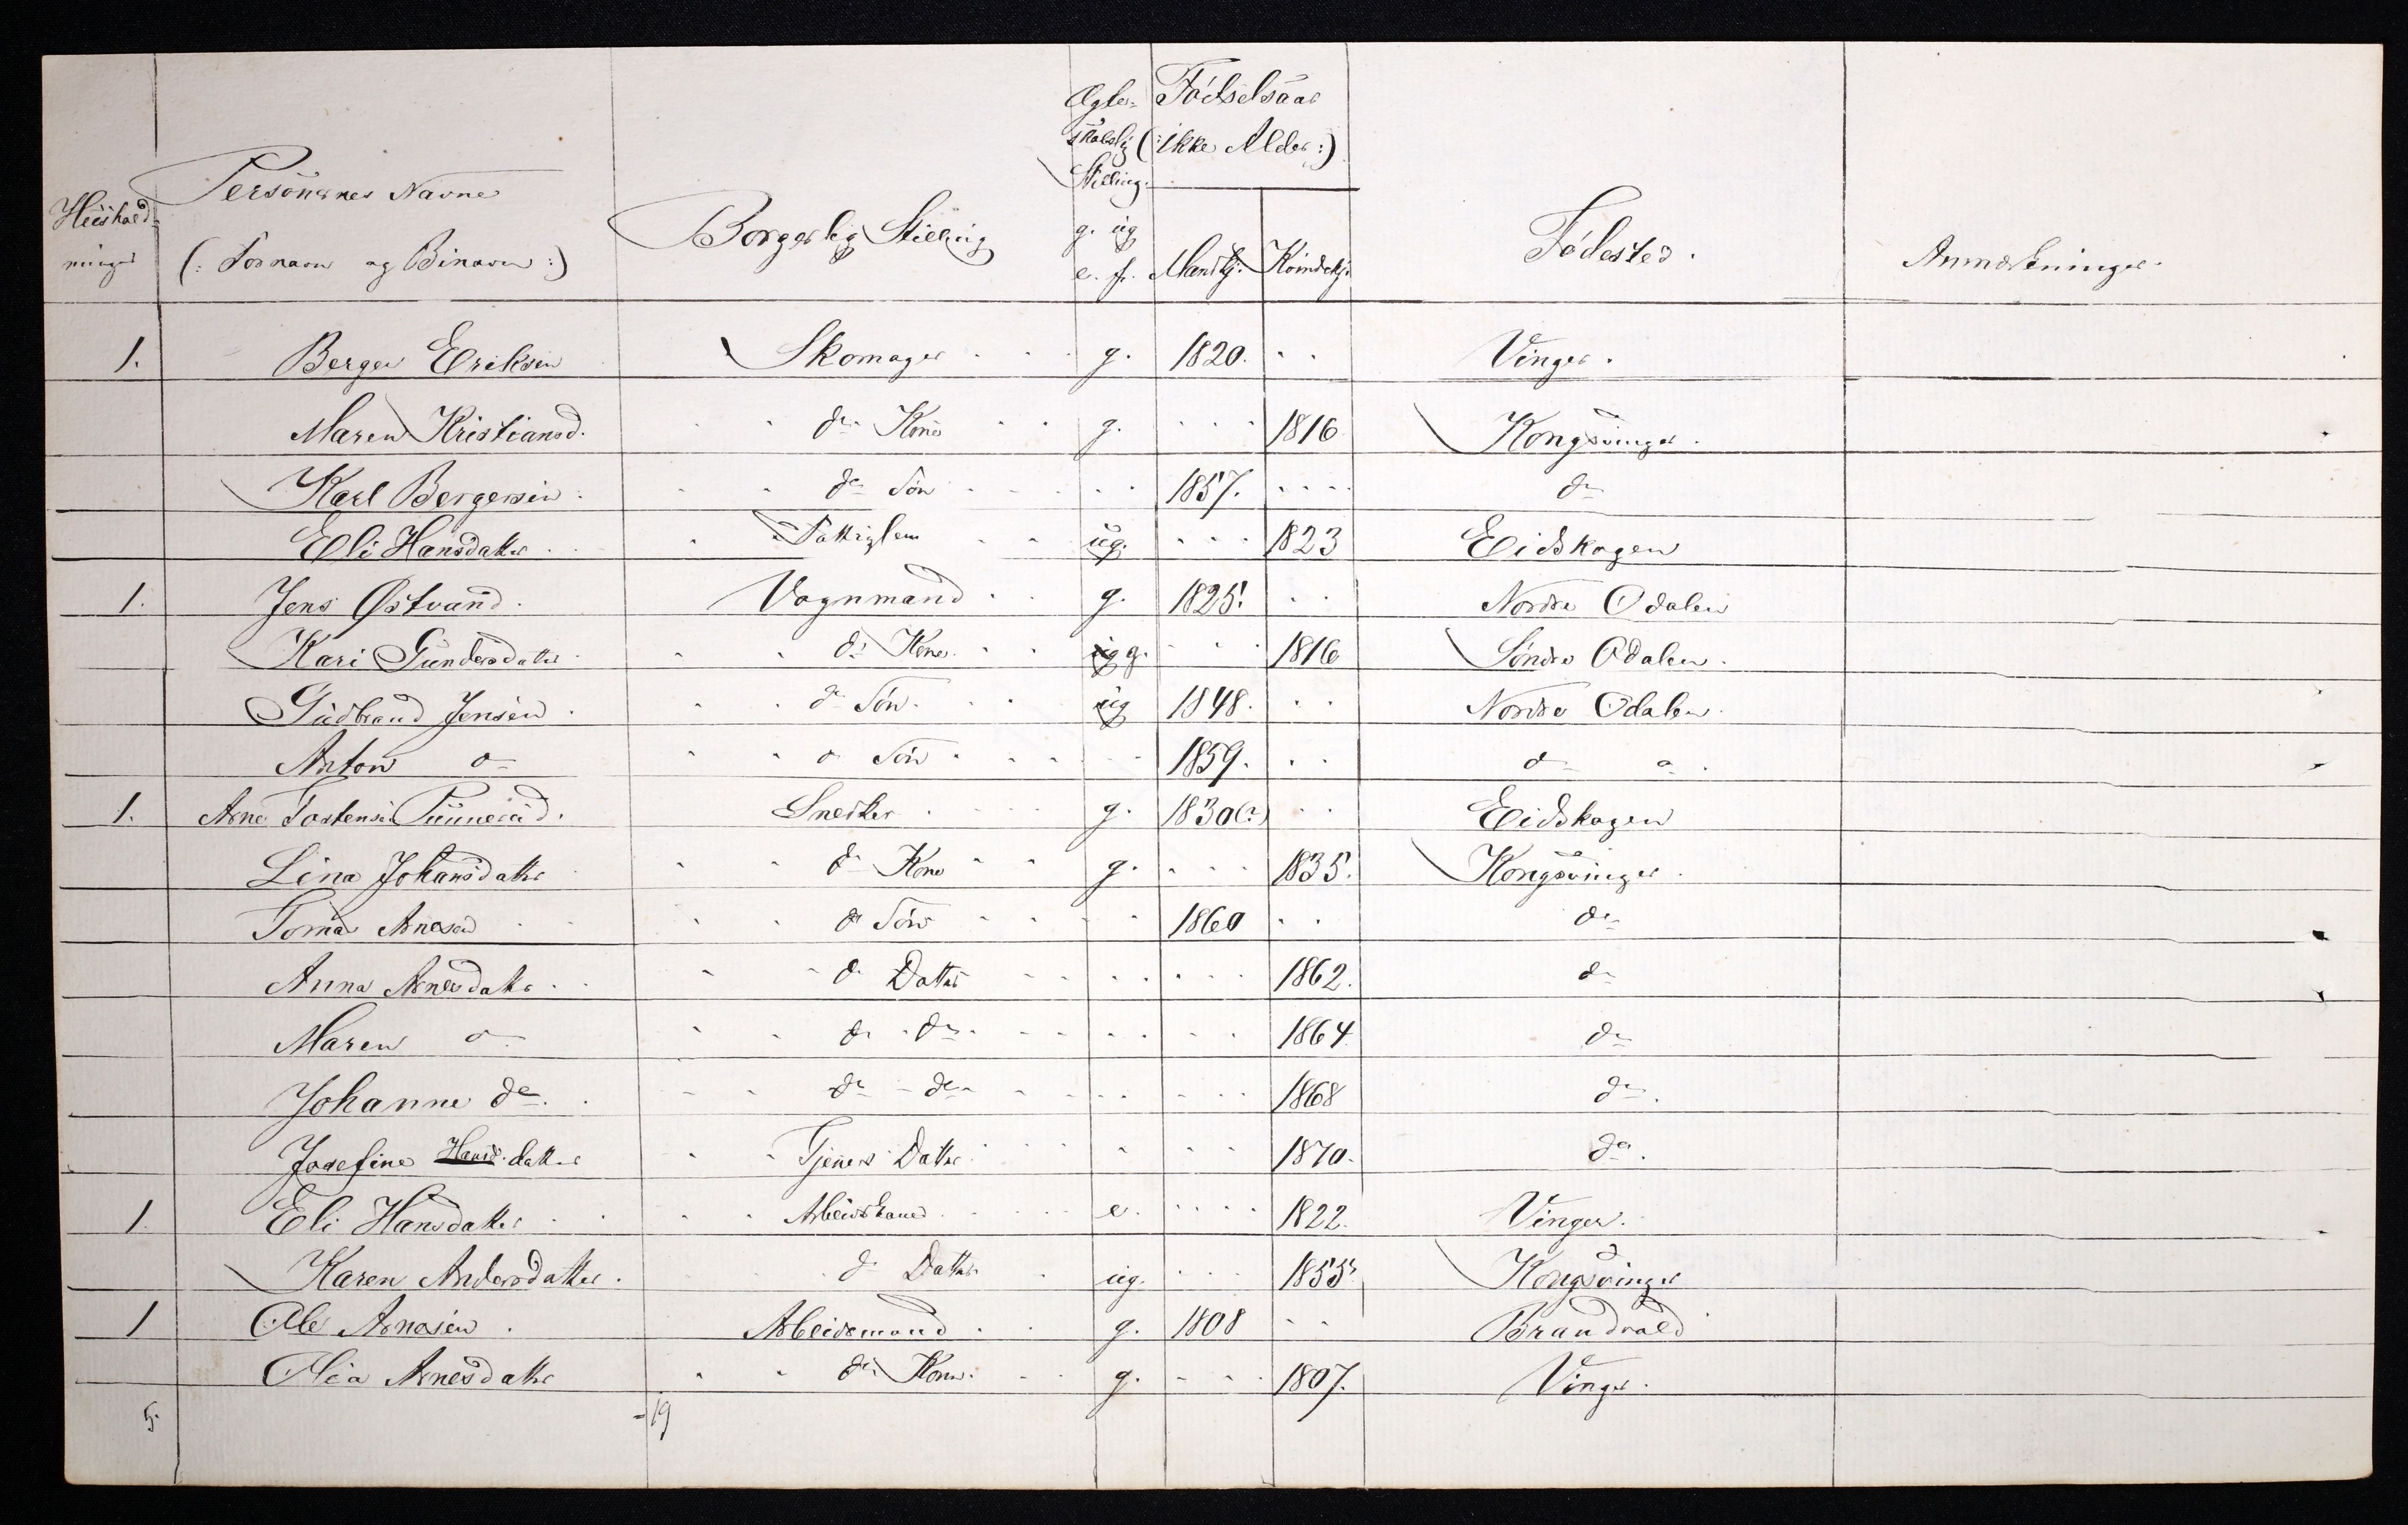 Huushold- Personernes Navne Borgerlig Stilling Ægte- Fødselsaar Fødested. Anmærkninger.
ninger (: Fornavn og Binavn :) skabelig (: ikke Alder :)
Stilling.
g. ug
e. f. Mandkj. Kvindekj.
1. Berger Eriksen Skomager g. 1820. Vinger.
Maren Kristiansd. do Kone g. 1816 Kongsvinger.
Karl Bergersen do Søn 1857. do
Eli Hansdatter Fattiglem ug. 1823 Eidskogen
1. Jens Østvand. Vognmand g. 1825. Nordre Odalen
Kari Gundersdatter do Kone. ug g. 1816 Søndre Odalen.
Gudbrand Jensen do Søn. ug 1848. Nordre Odalen.
Anton do do Søn 1859. do do
1. Arne Tostensen Snedker g. 1830(?) Eidskogen
Lina Johansdatter do Kone g. 1835. Kongsvinger.
Tomas Arnesen do Søn 1860 do
Anna Arnesdatter do Datter 1862. do
Maren do do do 1864 do
Johanne do do do 1868 do.
Josefine Hansd. datter Tjener Datter 1870. do.
1. Eli Hansdatter Arbeidskone e. 1822. Vinger.
Karen Andersdatter. do Datter ug. 1855. Kongsvinger
1 Ole Arnesen. Arbeidsmand g. 1808 Brandvold
Olia Arnesdatter do Kone. g. 1807. Vinger.
5. -19